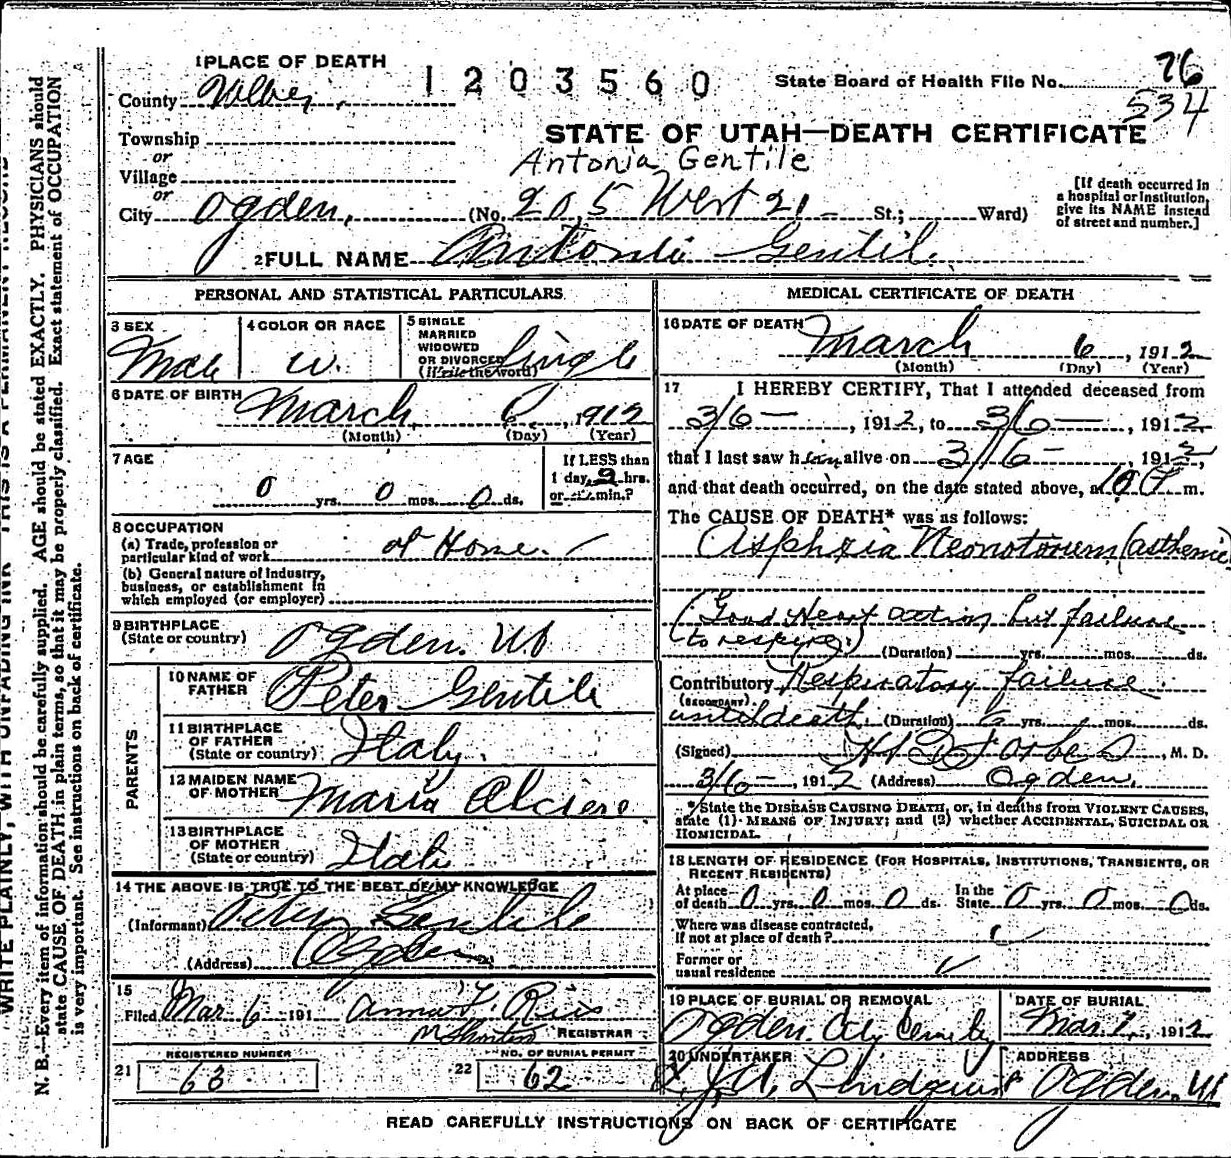 1 PLACE OF DEATH
1203560
State Board of Health File No. 76
534
County Weber
STATE OF UTAH—DEATH CERTIFICATE
Township
or
Village
Antonia Gentile
or
City Ogden, (No. 205 West 21 St.; Ward)
[If death occurred in a hospital or institution, give its NAME instead of street and number.]
2 FULL NAME Antoni Gentil
PERSONAL AND STATISTICAL PARTICULARS
3 SEX Male
4 COLOR OR RACE W.
5 SINGLE MARRIED WIDOWED OR DIVORCED (Write the word) Single
6 DATE OF BIRTH March 6, 1912
(Month) (Day) (Year)
7 AGE 0 yrs. 0 mos. 0 ds.
If LESS than 1 day, hrs. or min.?
8 OCCUPATION
(a) Trade, profession or particular kind of work at Home.
(b) General nature of industry, business, or establishment in which employed (or employer)
9 BIRTHPLACE (State or country) Ogden. Ut
PARENTS
10 NAME OF FATHER Peter Gentile
11 BIRTHPLACE OF FATHER (State or country) Italy.
12 MAIDEN NAME OF MOTHER Maria
13 BIRTHPLACE OF MOTHER (State or country) Italy
14 THE ABOVE IS TRUE TO THE BEST OF MY KNOWLEDGE
(Informant) Peter Gentile
(Address) Ogden
15
Filed Mar 6 191 Anna F.
REGISTRAR
21 REGISTERED NUMBER 63
22 NO. OF BURIAL PERMIT 62
MEDICAL CERTIFICATE OF DEATH
16 DATE OF DEATH March 6, 1912
(Month) (Day) (Year)
17 I HEREBY CERTIFY, That I attended deceased from
3/6 —, 1912, to 3/6 —, 1912
that I last saw him alive on 3/6 — 1912,
and that death occurred, on the date stated above, at m.
The CAUSE OF DEATH* was as follows:
Asphxia Neonotorum (asthenic
(Good Heart action but failure
to respire.)
(Duration) yrs. mos. ds.
Contributory Respiratory failure
(SECONDARY)
until death (Duration) yrs. mos. ds.
(Signed) M. D.
3/6 — 1912 (Address) Ogden.
* State the DISEASE CAUSING DEATH, or, in deaths from VIOLENT CAUSES, state (1) MEANS OF INJURY; and (2) whether ACCIDENTAL, SUICIDAL OR HOMICIDAL.
18 LENGTH OF RESIDENCE (FOR HOSPITALS, INSTITUTIONS, TRANSIENTS, OR RECENT RESIDENTS)
At place of death 0 yrs. 0 mos. 0 ds. In the State 0 yrs. 0 mos. 0 ds.
Where was disease contracted, if not at place of death?
Former or usual residence
19 PLACE OF BURIAL OR REMOVAL Ogden City
DATE OF BURIAL Mar. 7, 1912
20 UNDERTAKER
ADDRESS Ogden. Ut
READ CAREFULLY INSTRUCTIONS ON BACK OF CERTIFICATE
WRITE PLAINLY, WITH UNFADING INK THIS IS A PERMANENT RECORD
N. B.—Every item of information should be carefully supplied. AGE should be stated EXACTLY. PHYSICIANS should
state CAUSE OF DEATH in plain terms, so that it may be properly classified. Exact statement of OCCUPATION
is very important. See instructions on back of certificate.